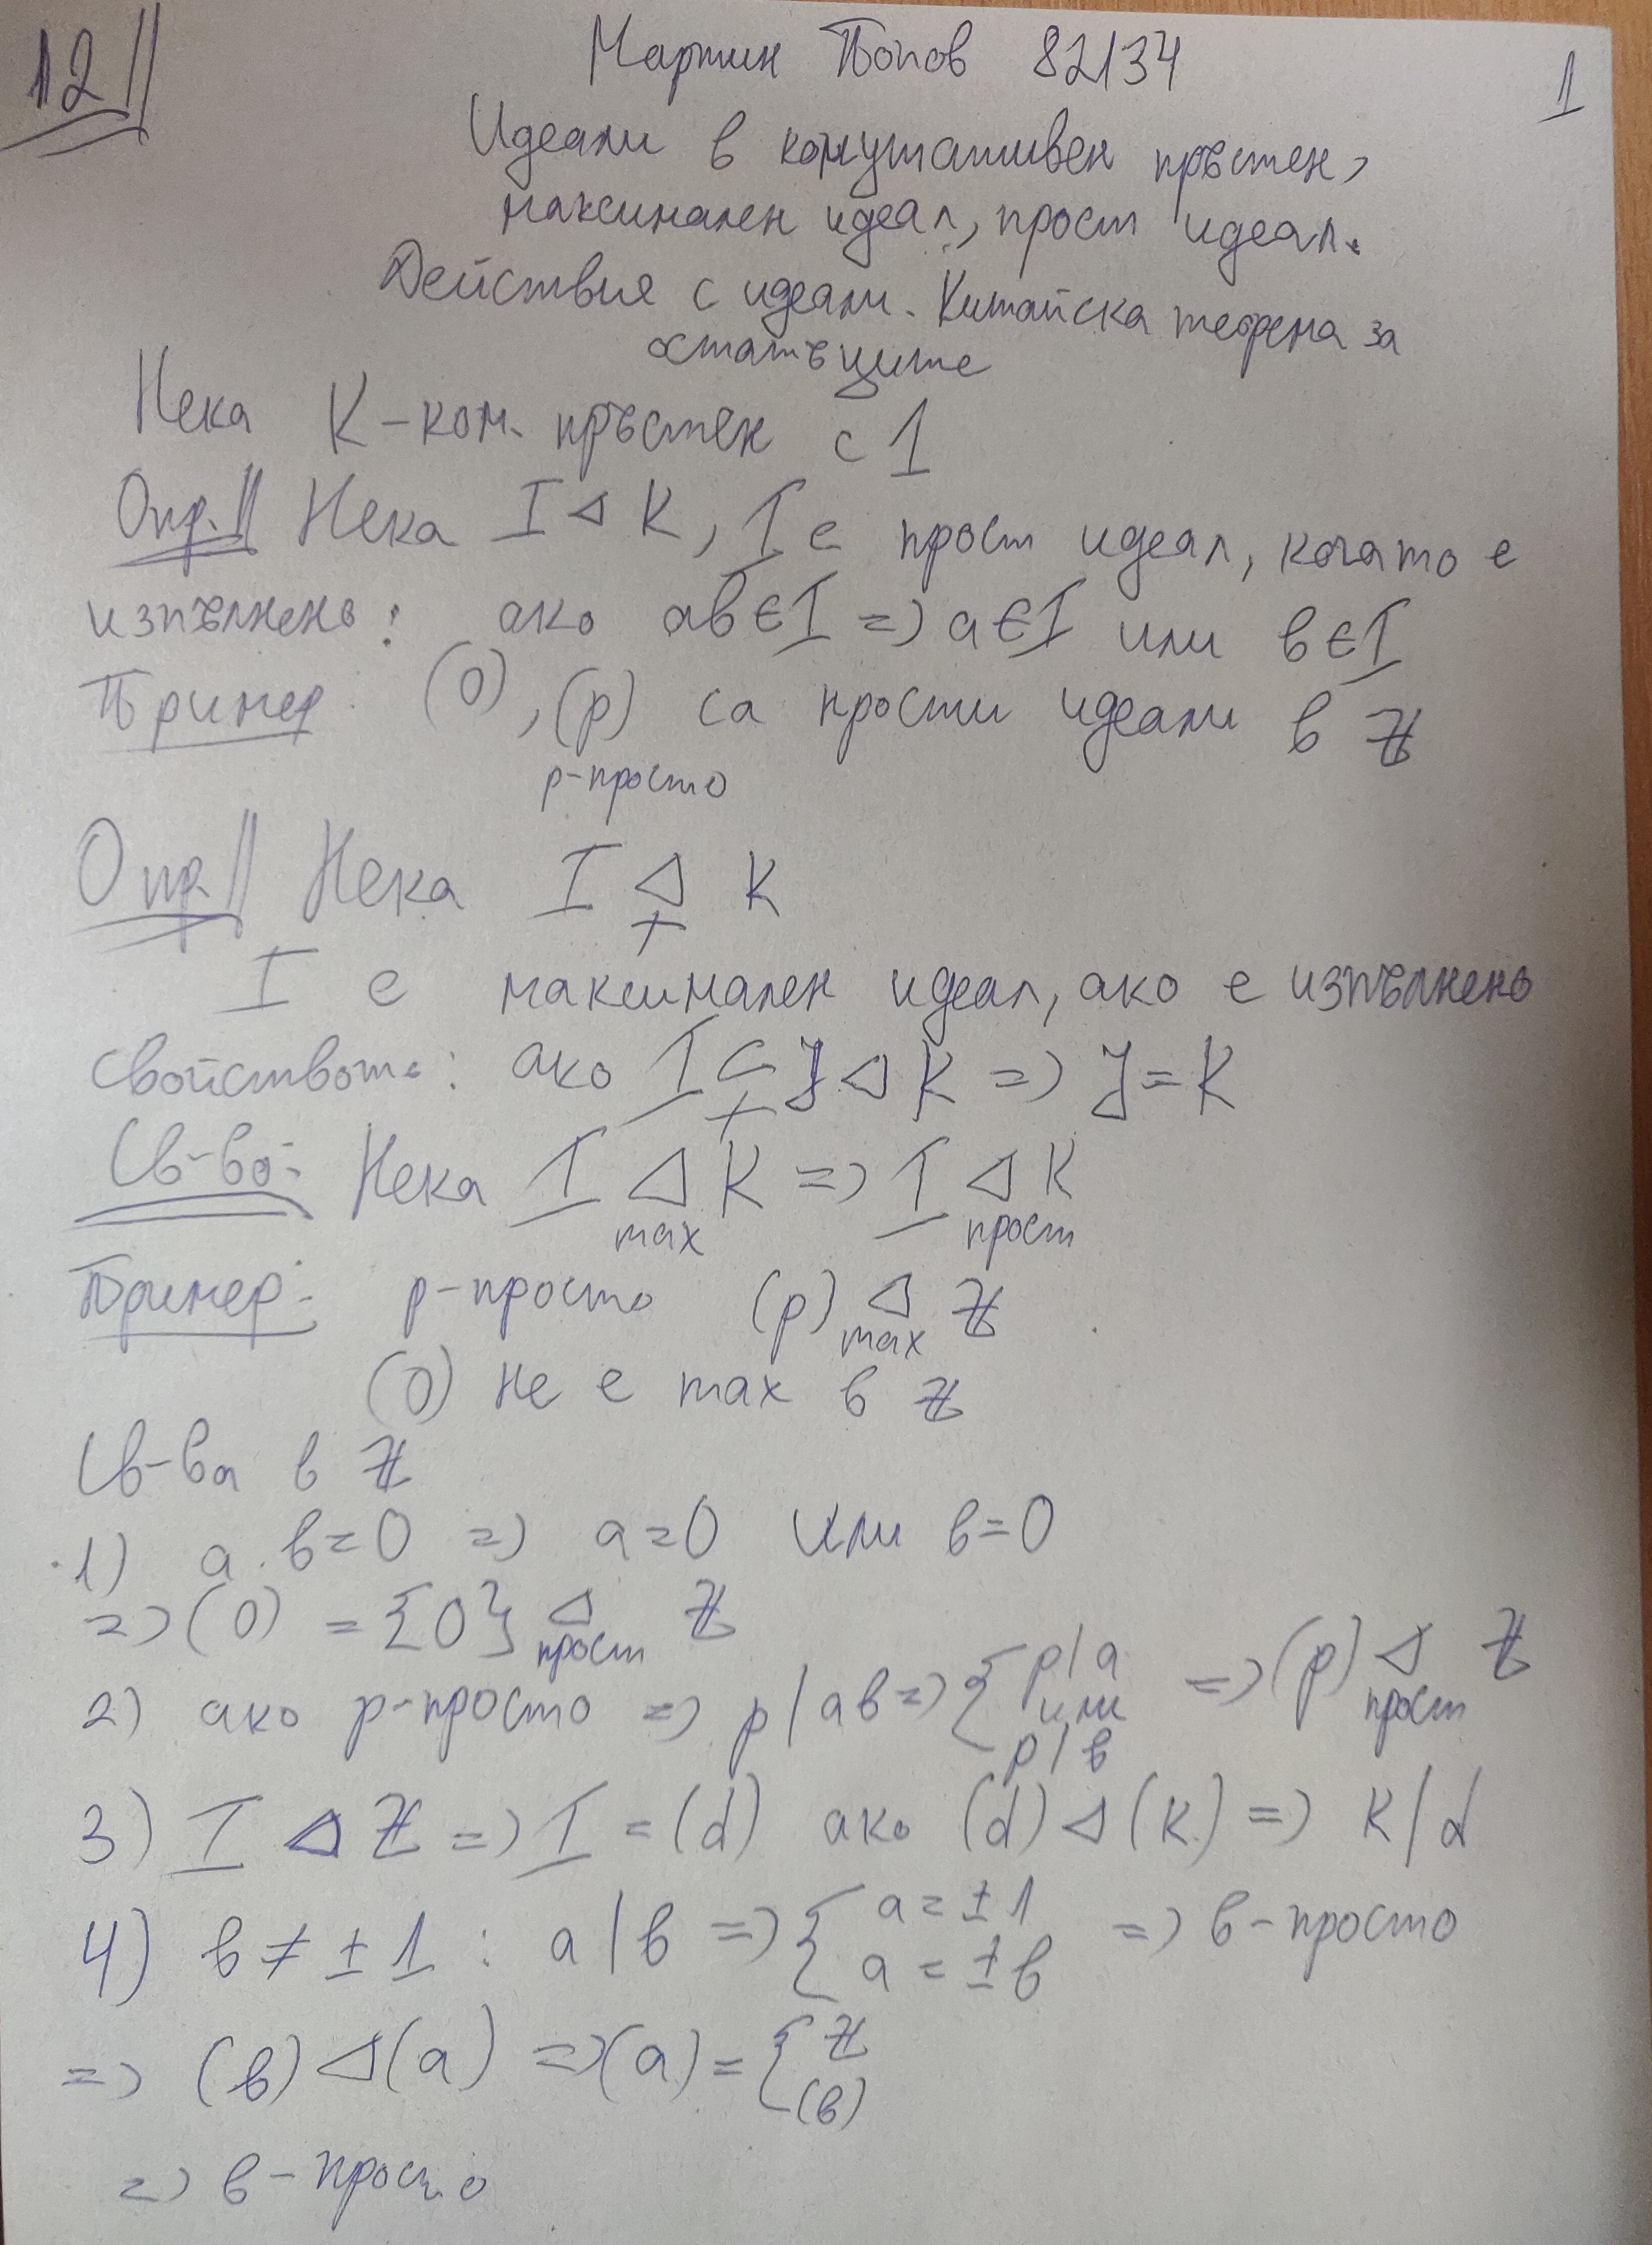 12||
Мартин Попов 82134
1
Идеали в комутативен пръстен,
максимален идеал, прост идеал.
Действия с идеали. Китайска теорема за
остатъците
Нека K-ком. пръстен с 1
Опр.|| Нека I ⊲ K, I е прост идеал, когато е
изпълнено: ако ab∈I => a∈I или b∈I
Пример: (0), (p) са прости идеали в ℤ
p-просто
Опр|| Нека I ⊲≠ K
I е максимален идеал, ако е изпълнено
свойството: ако I ⊊ J ⊲ K => J = K
Св-во: Нека I ⊲max K => I ⊲прост K
Пример: p-просто (p) ⊲max ℤ
(0) не е max в ℤ
Св-ва в ℤ
1) a.b=0 => a=0 или b=0
=> (0) = {0} ⊲прост ℤ
2) ако p-просто => p/ab => { p/a или p/b => (p) ⊲прост ℤ
3) I ⊲ ℤ => I = (d) ако (d) ⊲ (k) => k/d
4) b ≠ ±1 : a/b => { a = ±1 a = ±b => b-просто
=> (b) ⊲ (a) => (a) = { ℤ (b)
=> b-просто